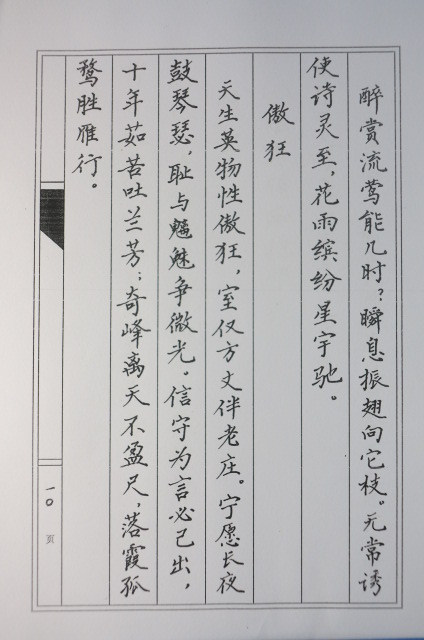 醉赏流莺能几时?瞬息振翅向它枝。无常诱
使诗灵至,花雨缤纷星宇驰。
傲狂
天生英物性傲狂,室仅方丈伴老庄。宁愿长夜
鼓琴瑟,耻与魑魅争微光。信守为言必己出,
十年茹苦吐兰芳;奇峰离天不盈尺,落霞孤
鹜胜雁行。
一〇页